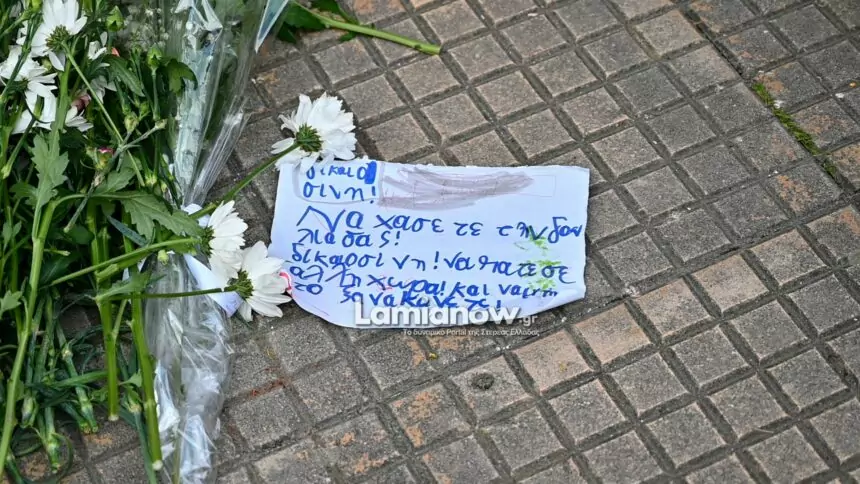 δικαιο
σινη!
Να χασετε τηνδου
λιασας!
δικαρσινη! να πατεσε
αλλη χωρα! και ναμη
το ξανακανετε!
Lamianow.gr
Το δυναμικό Portal της Στερεάς Ελλάδας